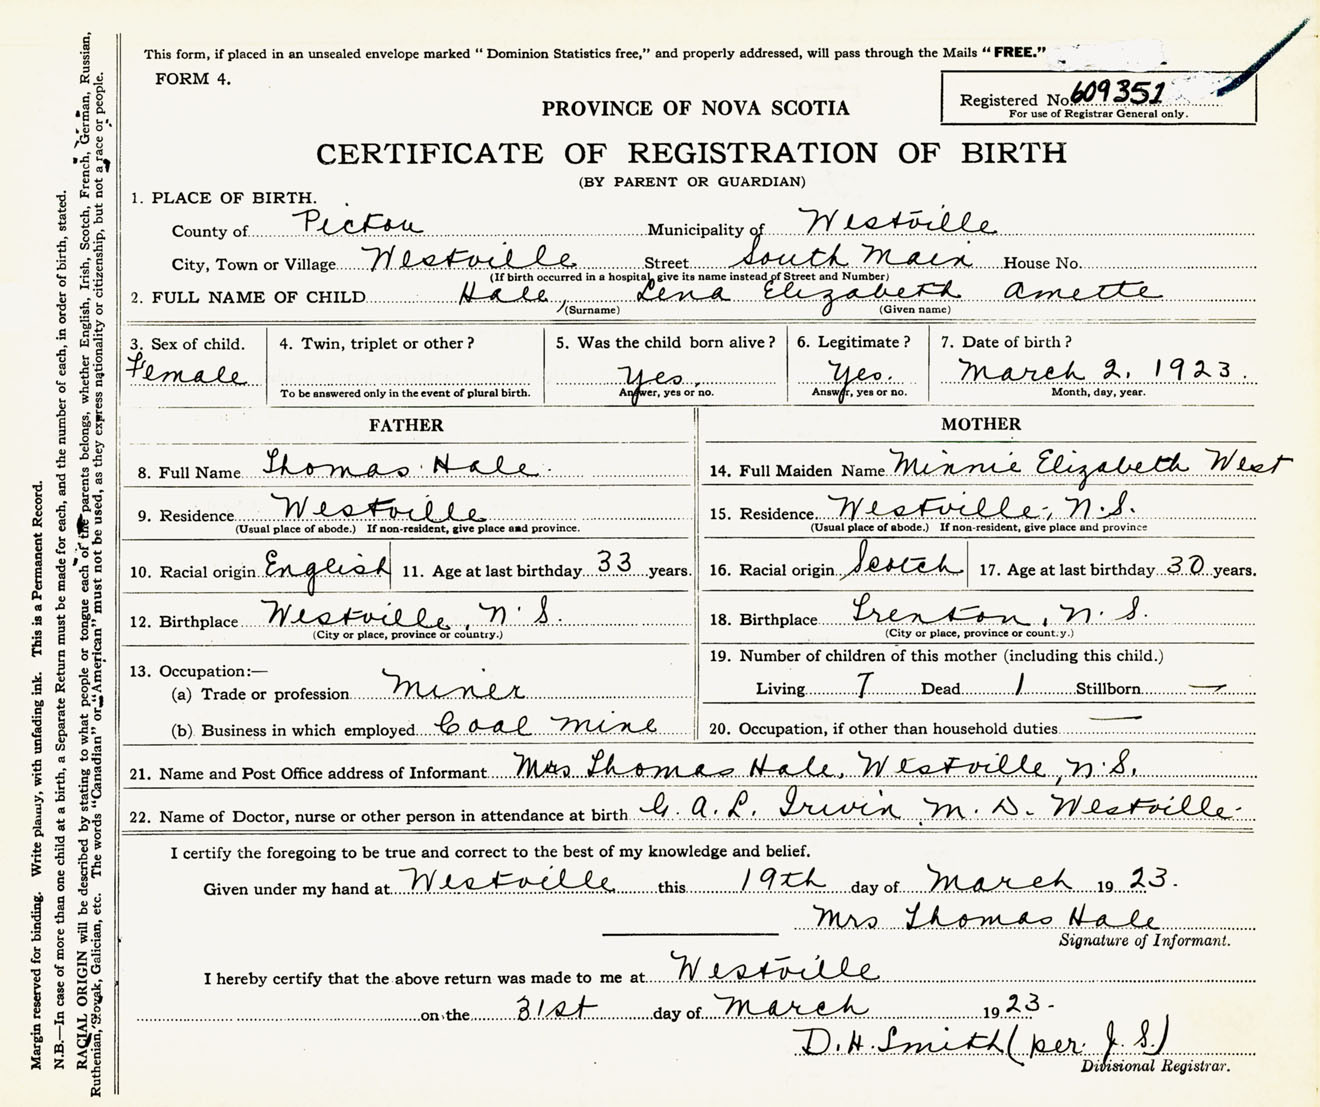 This form, if placed in an unsealed envelope marked "Dominion Statistics free," and properly addressed, will pass through the Mails "FREE."
FORM 4.
Registered No. 609351
For use of Registrar General only.
PROVINCE OF NOVA SCOTIA
CERTIFICATE OF REGISTRATION OF BIRTH
(BY PARENT OR GUARDIAN)
1. PLACE OF BIRTH.
County of Pictou Municipality of Westville
City, Town or Village Westville Street South Main House No.
(If birth occurred in a hospital, give its name instead of Street and Number)
2. FULL NAME OF CHILD Hale, Lena Elizabeth Amette
(Surname) (Given name)
3. Sex of child. 4. Twin, triplet or other? 5. Was the child born alive? 6. Legitimate? 7. Date of birth?
Female Yes. Yes. March 2, 1923.
To be answered only in the event of plural birth. Answer, yes or no. Answer, yes or no. Month, day, year.
FATHER MOTHER
8. Full Name Thomas Hale. 14. Full Maiden Name Minnie Elizabeth West
9. Residence Westville 15. Residence Westville, N.S.
(Usual place of abode.) If non-resident, give place and province. (Usual place of abode.) If non-resident, give place and province
10. Racial origin English 11. Age at last birthday 33 years. 16. Racial origin Scotch 17. Age at last birthday 30 years.
12. Birthplace Westville, N.S. 18. Birthplace Trenton, N.S.
(City or place, province or country.) (City or place, province or country.)
13. Occupation:— 19. Number of children of this mother (including this child.)
(a) Trade or profession Miner Living 7 Dead 1 Stillborn —
(b) Business in which employed Coal mine 20. Occupation, if other than household duties —
21. Name and Post Office address of Informant Mrs Thomas Hale, Westville, N.S.
22. Name of Doctor, nurse or other person in attendance at birth G. A. L. Irwin M. D. Westville
I certify the foregoing to be true and correct to the best of my knowledge and belief.
Given under my hand at Westville this 19th day of March 1923.
Mrs Thomas Hale
Signature of Informant.
I hereby certify that the above return was made to me at Westville
on the 31st day of March 1923-
D. H. Smith (per. J. S.)
Divisional Registrar.
Margin reserved for binding. Write plainly, with unfading ink. This is a Permanent Record.
N.B.—In case of more than one child at a birth, a Separate Return must be made for each, and the number of each, in order of birth, stated.
RACIAL ORIGIN will be described by stating to what people or tongue each of the parents belongs, whether English, Irish, Scotch, French, German, Russian,
Ruthenian, Slovak, Galician, etc. The words "Canadian" or "American" must not be used, as they express nationality or citizenship, but not a race or people.